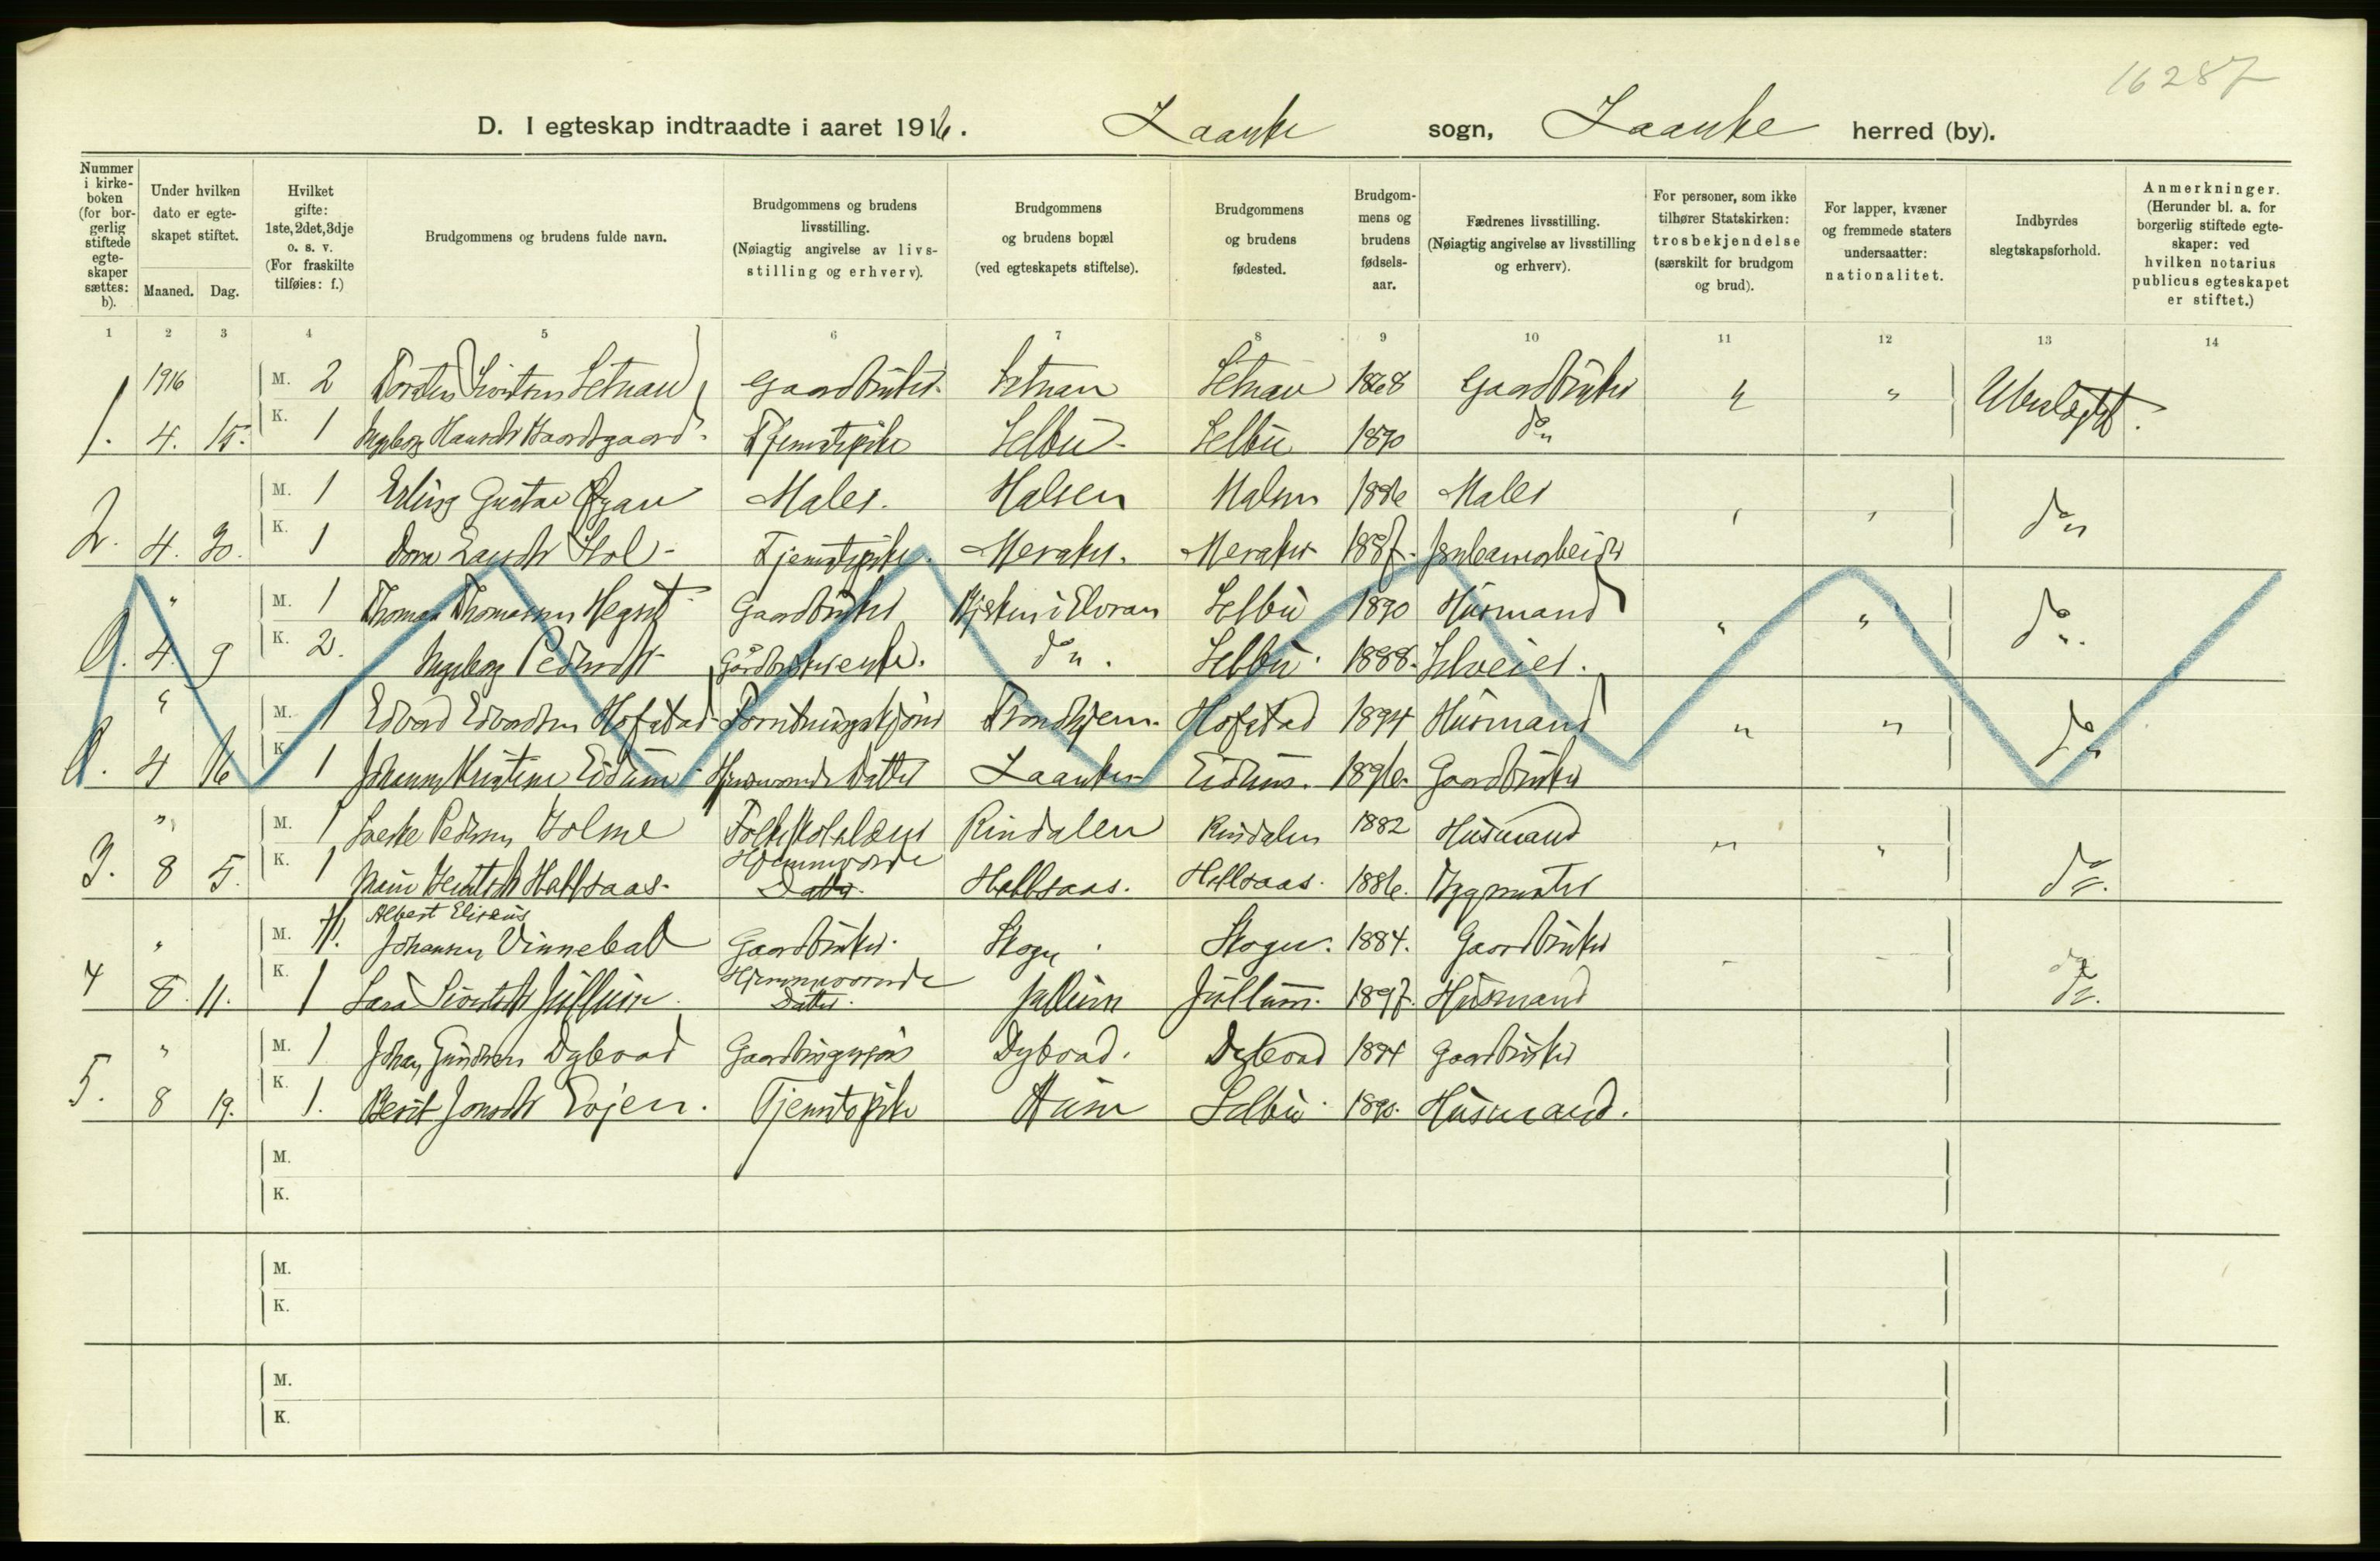 16287
D. I egteskap indtraadte i aaret 1916. Laanke sogn, Laanke herred (by).
Nummer i kirke- boken (for bor- gerlig stiftede egte- skaper sættes: b).
Under hvilken dato er egte- skapet stiftet.
Maaned. Dag.
Hvilket gifte: 1ste, 2det, 3dje o. s. v. (For fraskilte tilføies: f.)
Brudgommens og brudens fulde navn.
Brudgommens og brudens livsstilling. (Nøiagtig angivelse av livs- stilling og erhverv).
Brudgommens og brudens bopæl (ved egteskapets stiftelse).
Brudgommens og brudens fødested.
Brudgom- mens og brudens fødsels- aar.
Fædrenes livsstilling. (Nøiagtig angivelse av livsstilling og erhverv).
For personer, som ikke tilhører Statskirken: trosbekjendelse (særskilt for brudgom og brud).
For lapper, kvæner og fremmede staters undersaatter: nationalitet.
Indbyrdes slegtskapsforhold.
Anmerkninger. (Herunder bl. a. for borgerlig stiftede egte- skaper: ved hvilken notarius publicus egteskapet er stiftet.)
1 2 3 4 5 6 7 8 9 10 11 12 13 14
1916 M. 2 Setnan Gaardbruker Setnan Setnan 1868 Gaardbruker " " Ubeslægtet.
1. 4. 15. K. 1 Ingeborg Tjenestepike Selbu Selbu 1890 do
M. 1 Erling Gustav Øyan Maler. Halsen Halsen 1886 Maler " " do
2. 4. 30. K. 1 Dora Tjenestepike. Meraker. Meraker 1887.
" M. 1 Thomas Thomassen Gaardbruker Selbu 1890 Husmand " " do.
0. 4. 9 K. 2. Ingeborg Pedersdtr do. Selbu. 1888. Selveier.
" M. 1 Edvard Edvardsen Hofstad Trondhjem. Hofstad 1894 Husmand " " do
0. 4 16 K. 1 Johanna Kristine Eidum Hjemmevær. Datter Laanke Eidum. 1896. Gaardbruker
" M. 1 Pedersen Holme Folkeskolelærer Rindalen Rindalen 1882 Husmand " "
3. 8 5. K. 1 Hellsaas. Hjemmeværende Datter. Hellsaas. Hellsaas. 1886. Bygmester do.
Albert Eliseus
" M. 1. Johansen Vinnebal Gaardbruker. Skogn. Skogn. 1884. Gaardbruker - -
4 8. 11. K. 1 Sara Julium. Hjemmeværende Datter. Jullum Jullum. 1897. Husmand do.
" M. 1 Johan Dybvad Dybvad. Dybvad 1894 Gaardbruker
5. 8 19. K. 1. Berit Jonsdtr Evjen. Tjenestepike Selbu. 1890. Husmand.
M.
K.
M.
K.
M.
K.